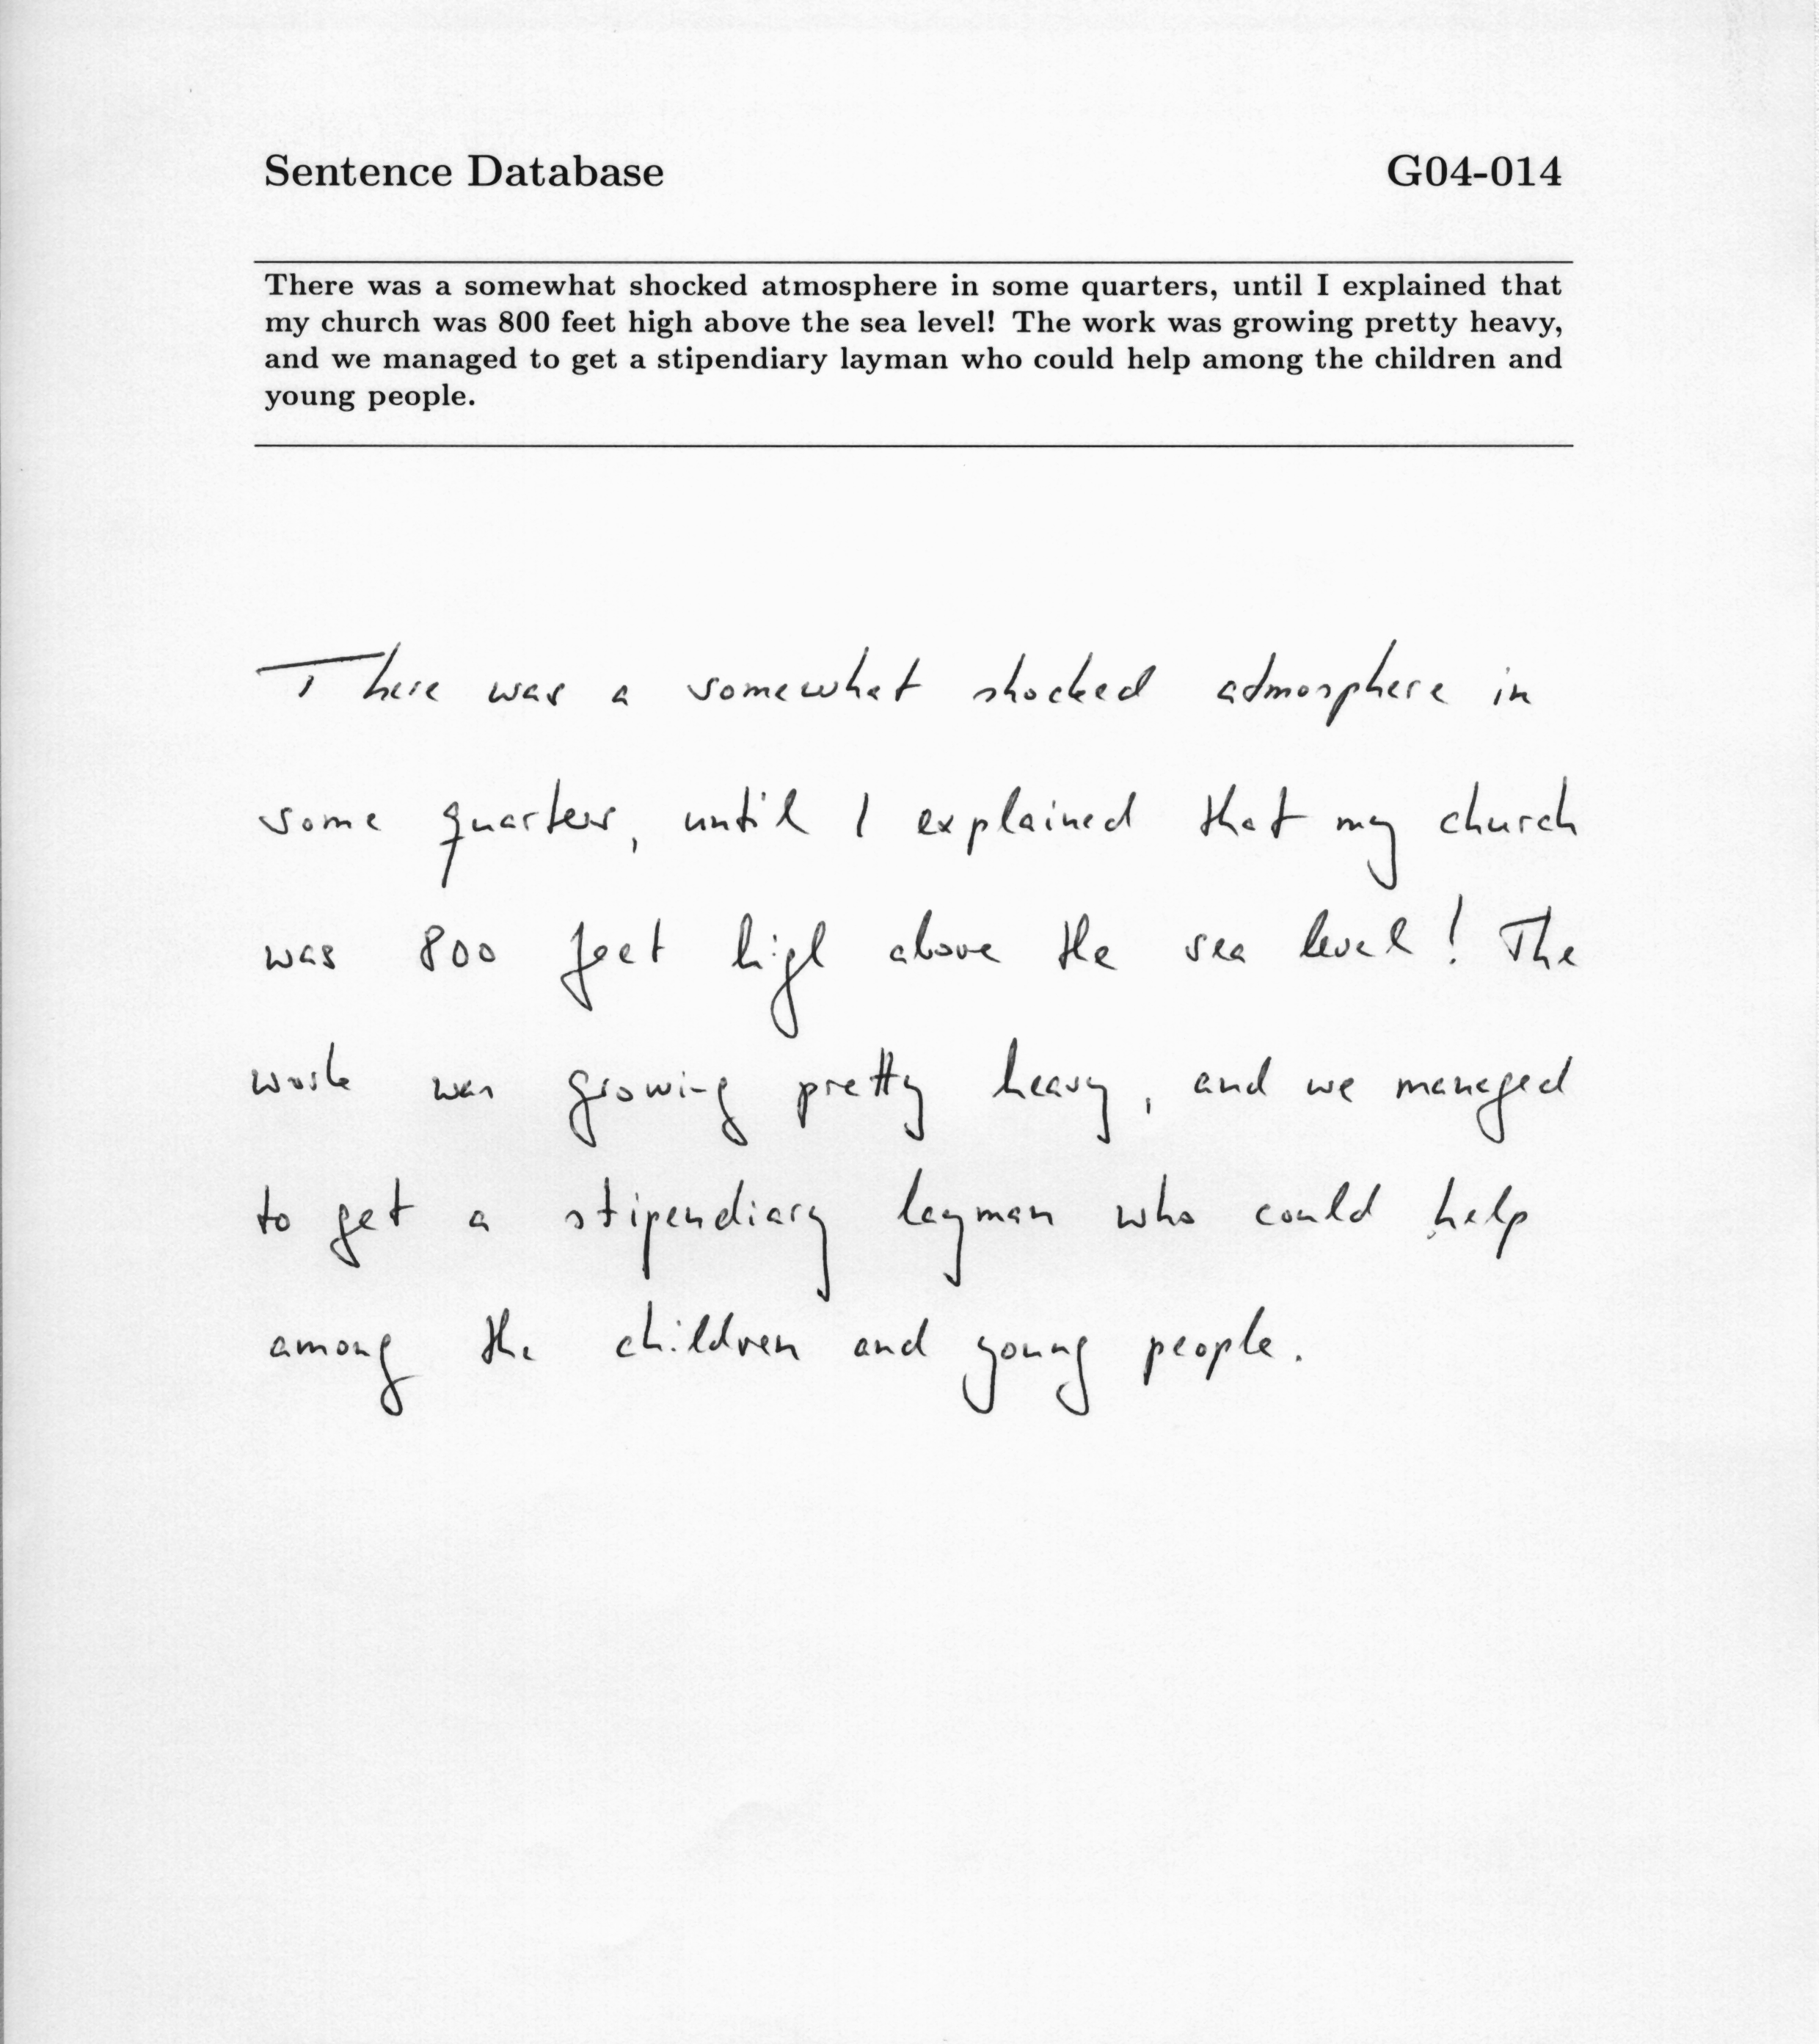 Sentence Database G04-014
There was a somewhat shocked atmosphere in some quarters, until I explained that
my church was 800 feet high above the sea level! The work was growing pretty heavy,
and we managed to get a stipendiary layman who could help among the children and
young people.
There was a somewhat shocked admosphere in
some quarters, until I explained that my church
was 800 feet high above the sea level! The
work was growing pretty heavy, and we managed
to get a stipendiary layman who could help
among the children and young people.